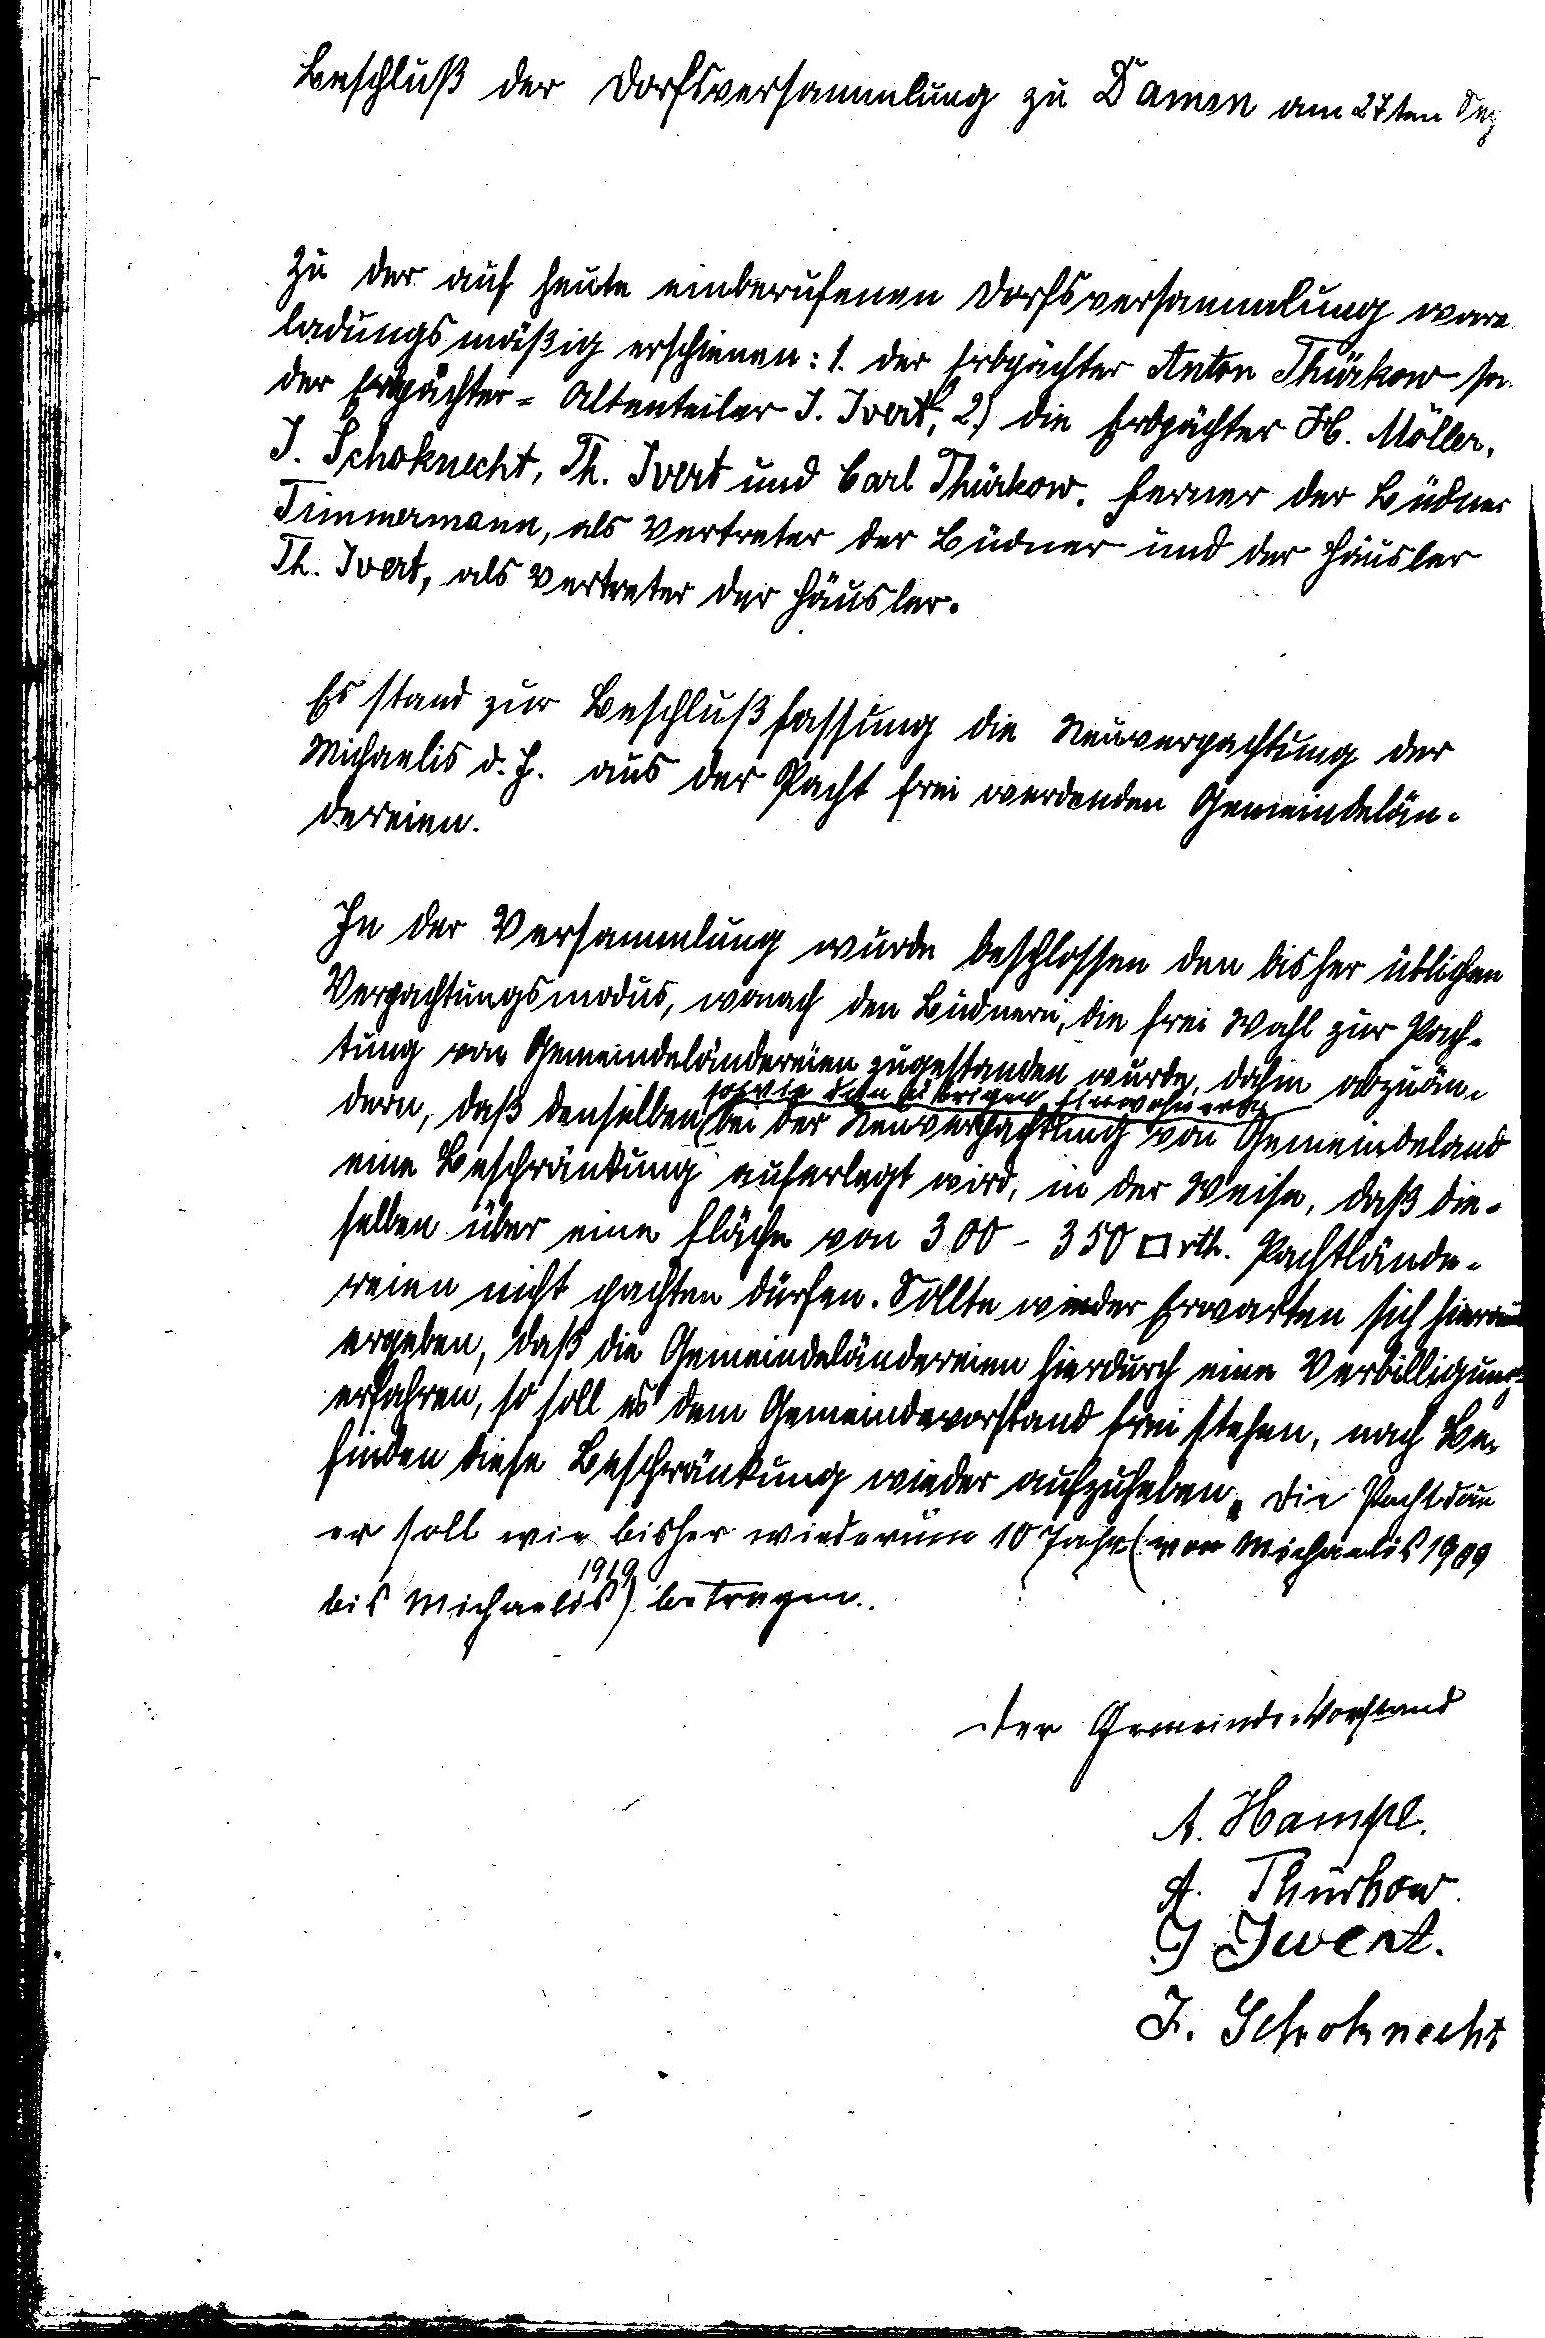 Beschluß der Dorfsversammlung zu Damen am 27ten
Zu der auf heute einberufenen Dorfsversammlung ware
ladungsmäßig erschienen: 1. der Erbpächter Anton Thürkow
der Erbpächter-Altenteiler J. Ivert, 2) die Erbpächter H. Möller,
J. Schoknecht, Th. Ivert und Carl Thürkow. Ferner der Büdner
Timmermann, als Vertreter der Büdner und der Häusler
Th. Ivert, als Vertreter der Häusler.
Es stand zur Beschlußfassung die Neuverpachtung der
Michaelis d. J. aus der Pacht frei werdenden Gemeindelän-
dereien.
In der Versammlung wurde beschlossen den bisher üblichen
Verpachtungsmodus, wonach den Büdnern, die frei Wahl zur Pach-
tung von Gemeindeländereien zugestanden wurde, dahin abzuän-
sowie den übrigen Einwohnern
dern, daß denselben bei der Neuverpachtung von Gemeindeland
eine Beschränkung auferlegt wird, in der Weise, daß die-
selben über eine Fläche von 300 - 350 □ rth. Pachtlände-
reien nicht pachten dürfen. Sollte wieder Erwarten sich hieraus
ergeben, daß die Gemeindeländereien hierdurch eine Verbilligung
erfahren, so soll es dem Gemeindevorstand frei stehen, nach Be-
finden diese Beschränkung wieder aufzuheben. Die Pachtdau
er soll wie bisher wiederum 10 Jahr (von Michaelis 1909
1919
bis Michaelis) betragen.
Der Gemeinde-Vorstand
A. Hampel.
A. Thürkow.
J Iwert.
J. Schoknecht